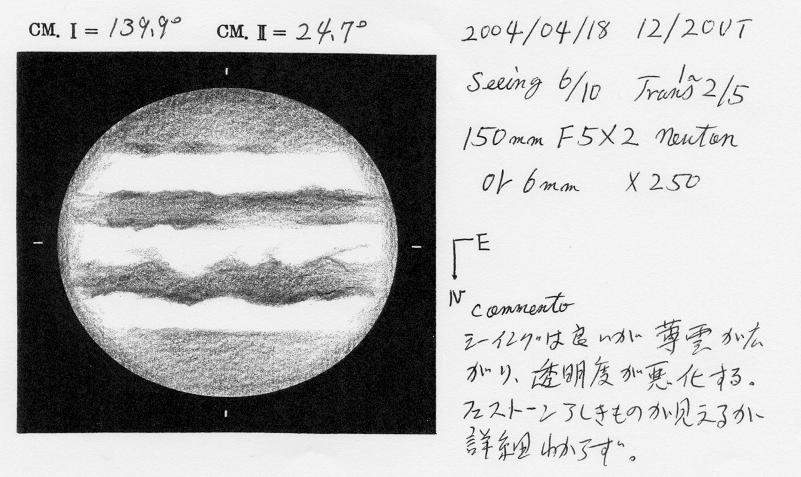 CM. I = 139.9° CM. II = 24.7°
2004/04/18 12/20UT
Seeing 6/10 Trans 1~2/5
150mm F5X2 neuton
Or 6mm X250
E
N
commento
シーイングは良いが薄雲が広
がり、透明度が悪化する。
フェストーンらしきものが見えるが
詳細わからず。